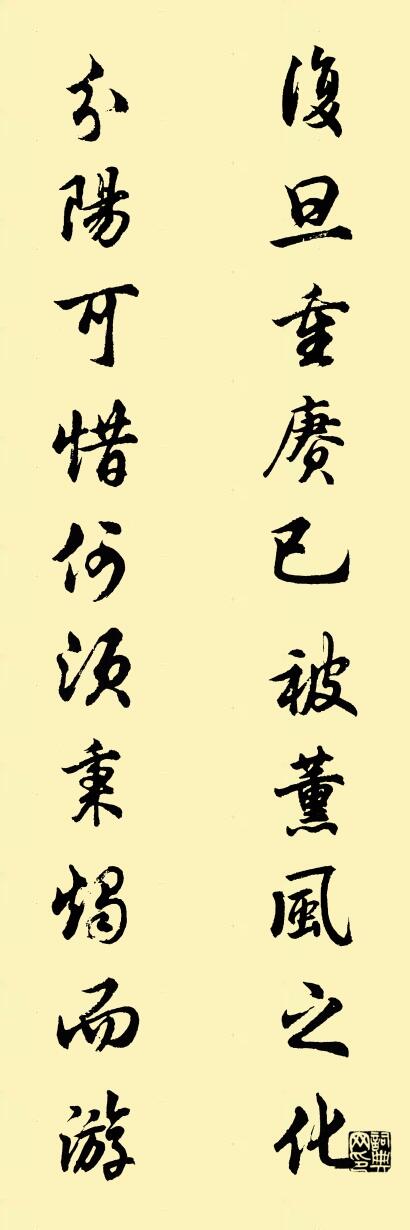 復旦重賡已被薰風之化
分陽可惜何須秉燭而游
詞典網印